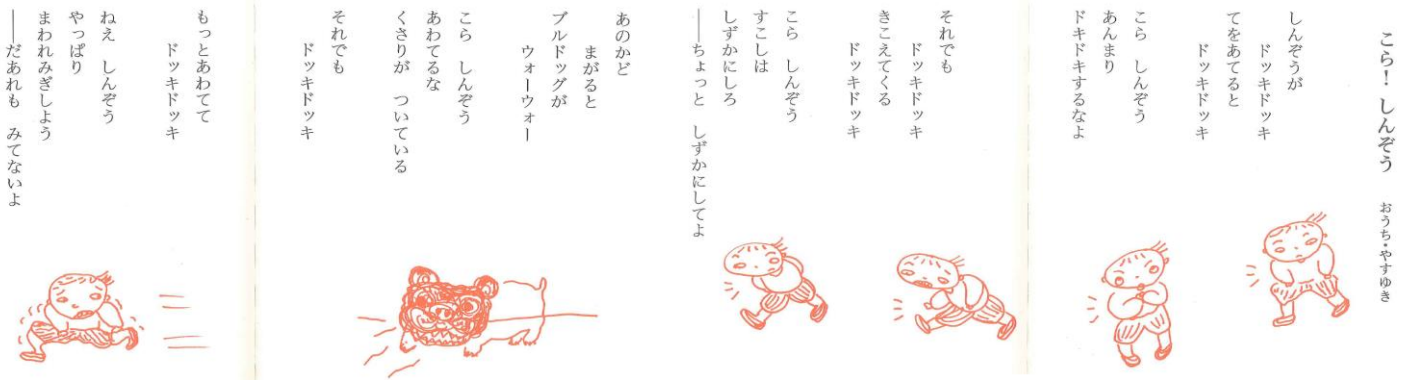 こら！　しんぞう　　おうち・やすゆき
しんぞうが
ドッキドッキ
てをあてると
ドッキドッキ
こら　しんぞう
あんまり
ドキドキするなよ
それでも
ドッキドッキ
きこえてくる
ドッキドッキ
こら　しんぞう
すこしは
しずかにしろ
──ちょっと　しずかにしてよ
あのかど
まがると
ブルドッグが
ウォーウォー
こら　しんぞう
あわてるな
くさりが　ついている
それでも
ドッキドッキ
もっとあわてて
ドッキドッキ
ねえ　しんぞう
やっぱり
まわれみぎしよう
──だあれも　みてないよ